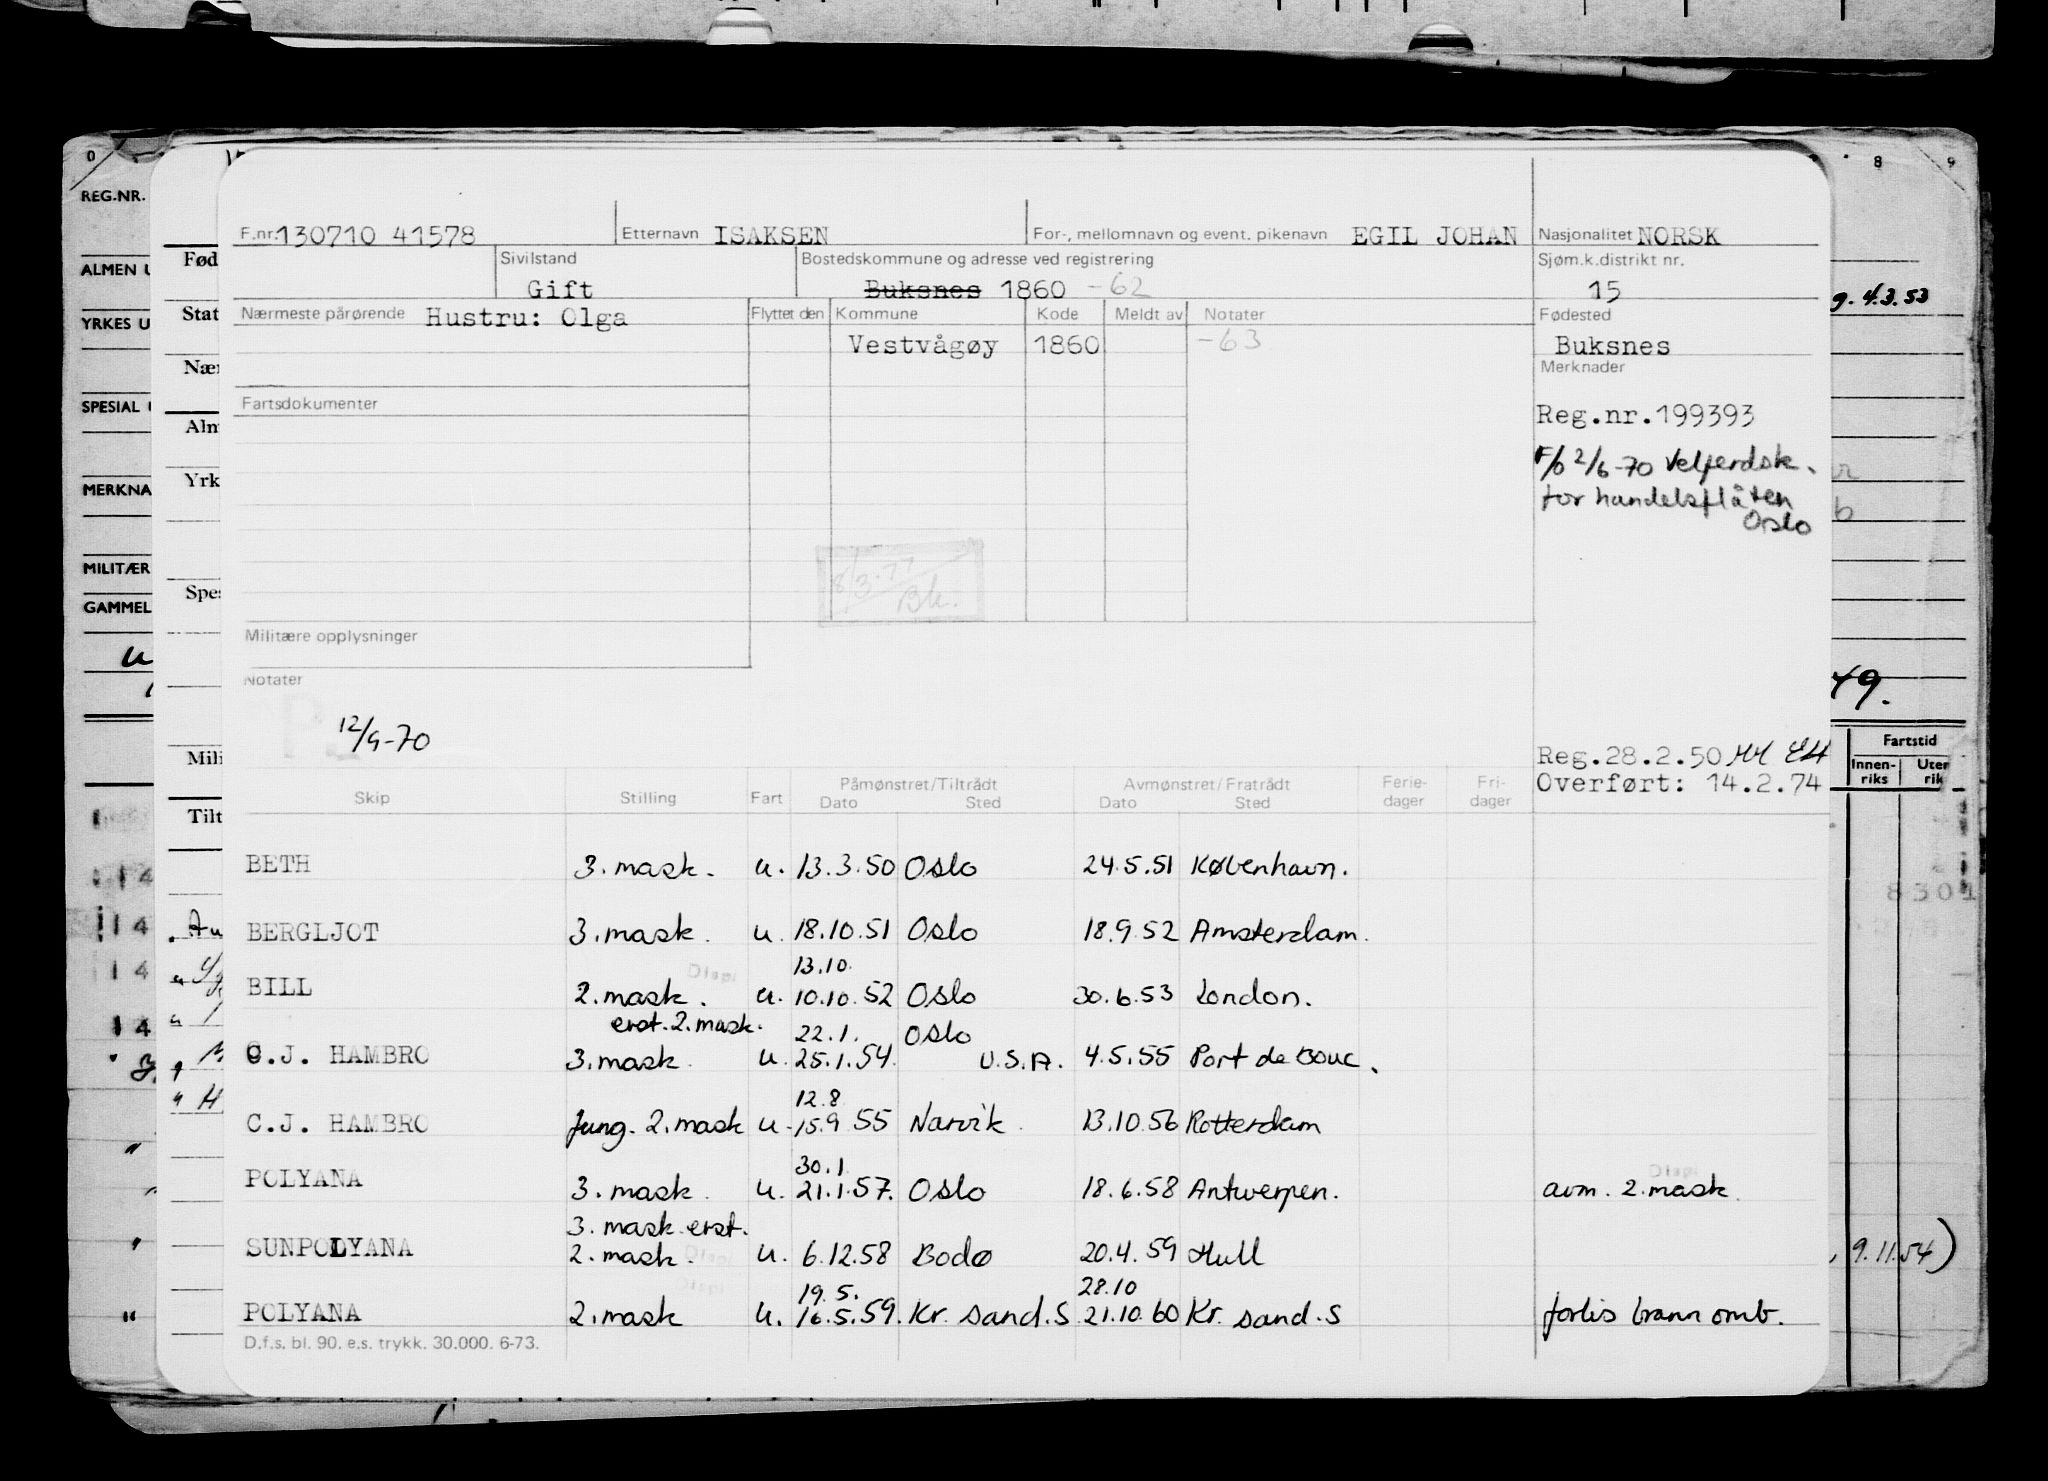 0 8 9
REG.NR.
F.nr. 130710 41578 Etternavn ISAKSEN For-, mellomnavn og event. pikenavn EGIL JOHAN Nasjonalitet NORSK
ALMEN U Fød Sivilstand Bostedskommune og adresse ved registrering Sjøm.k.distrikt nr.
Gift Buksnes 1860 -62 15
g. 4.3.53
YRKES U Stat Nærmeste pårørende Hustru: Olga Flyttet den Kommune Kode Meldt av Notater Fødested
Vestvågøy 1860 -63 Buksnes
Nær Merknader
SPESIAL Fartsdokumenter
Alm Reg.nr.199393
F/b 2/6-70 Velferdsk.
MERKNA Yrk for handelsflåten
Oslo
8/3-77
MILITÆR Bk.
Spes
GAMMEL
Militære opplysninger
Notater
49.
12/9-70
Mili Reg.28.2.50
Overført: 14.2.74
Fartstid
Innen-riks Uten rik
Skip Stilling Fart Påmønstret/Tiltrådt Avmønstret/Fratrådt Ferie-dager Fri-dager
Dato Sted Dato Sted
Tilt
BETH 3. mask. u. 13.3.50 Oslo 24.5.51 København.
14
8301
BERGLJOT 3. mask. u. 18.10.51 Oslo 18.9.52 Amsterdam.
14
13.10.
BILL 2. mask. u. 10.10.52 Oslo 30.6.53 London.
14
erst. 2. mask. 22.1. Oslo
C.J. HAMBRO 3. mask. u. 25.1.54. U.S.A. 4.5.55 Port de Bouc.
14
12.8
C.J. HAMBRO Jung. 2. mask u. 15.9 55 Narvik. 13.10.56 Rotterdam
30.1.
POLYANA 3. mask. u. 21.1.57. Oslo 18.6.58 Antwerpen. avm. 2. mask.
3. mask erst.
SUNPOLYANA 2. mask. u. 6.12.58 Bodø 20.4.59 Hull
9.11.54)
19.5. 28.10
POLYANA 2. mask u. 16.5.59. Kr. sand.S 21.10.60 Kr. sand.S forlis brann omb.
D.f.s. bl. 90. e.s. trykk. 30.000. 6-73.